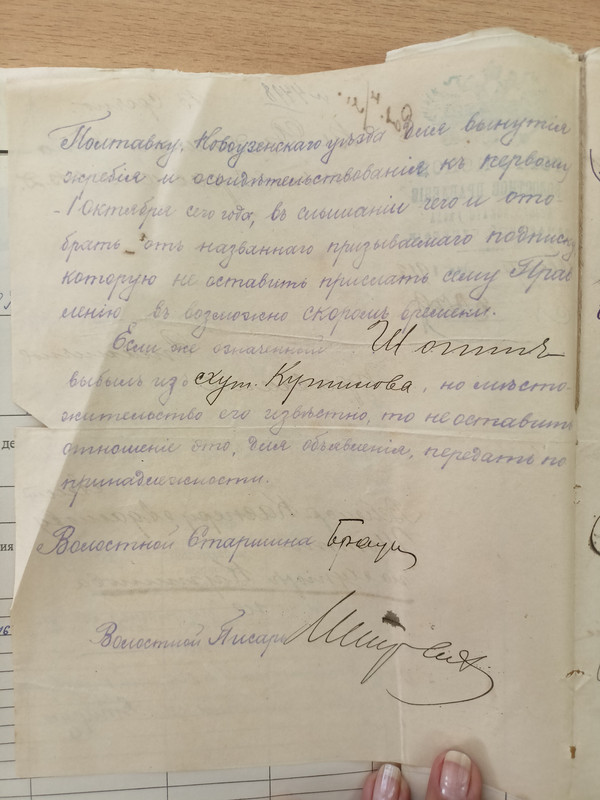 Полтавку, Новоузенскаго уѣзда для вынутія
жребія и освидѣтельствованія къ первому
1 Октября сего года, въ слышаніи чего и ото-
брать отъ названнаго призываемаго подписку
которую не оставить прислать сему Прав
ленію въ возможно скоромъ времени.
Если же означенный
выбылъ изъ хут. Кутилова, но мѣсто-
жительство его извѣстно, то не оставить
отношеніе это, для объявленія, передать по
принадлежности.
Волостной Старшина Браун
Волостной Писарь